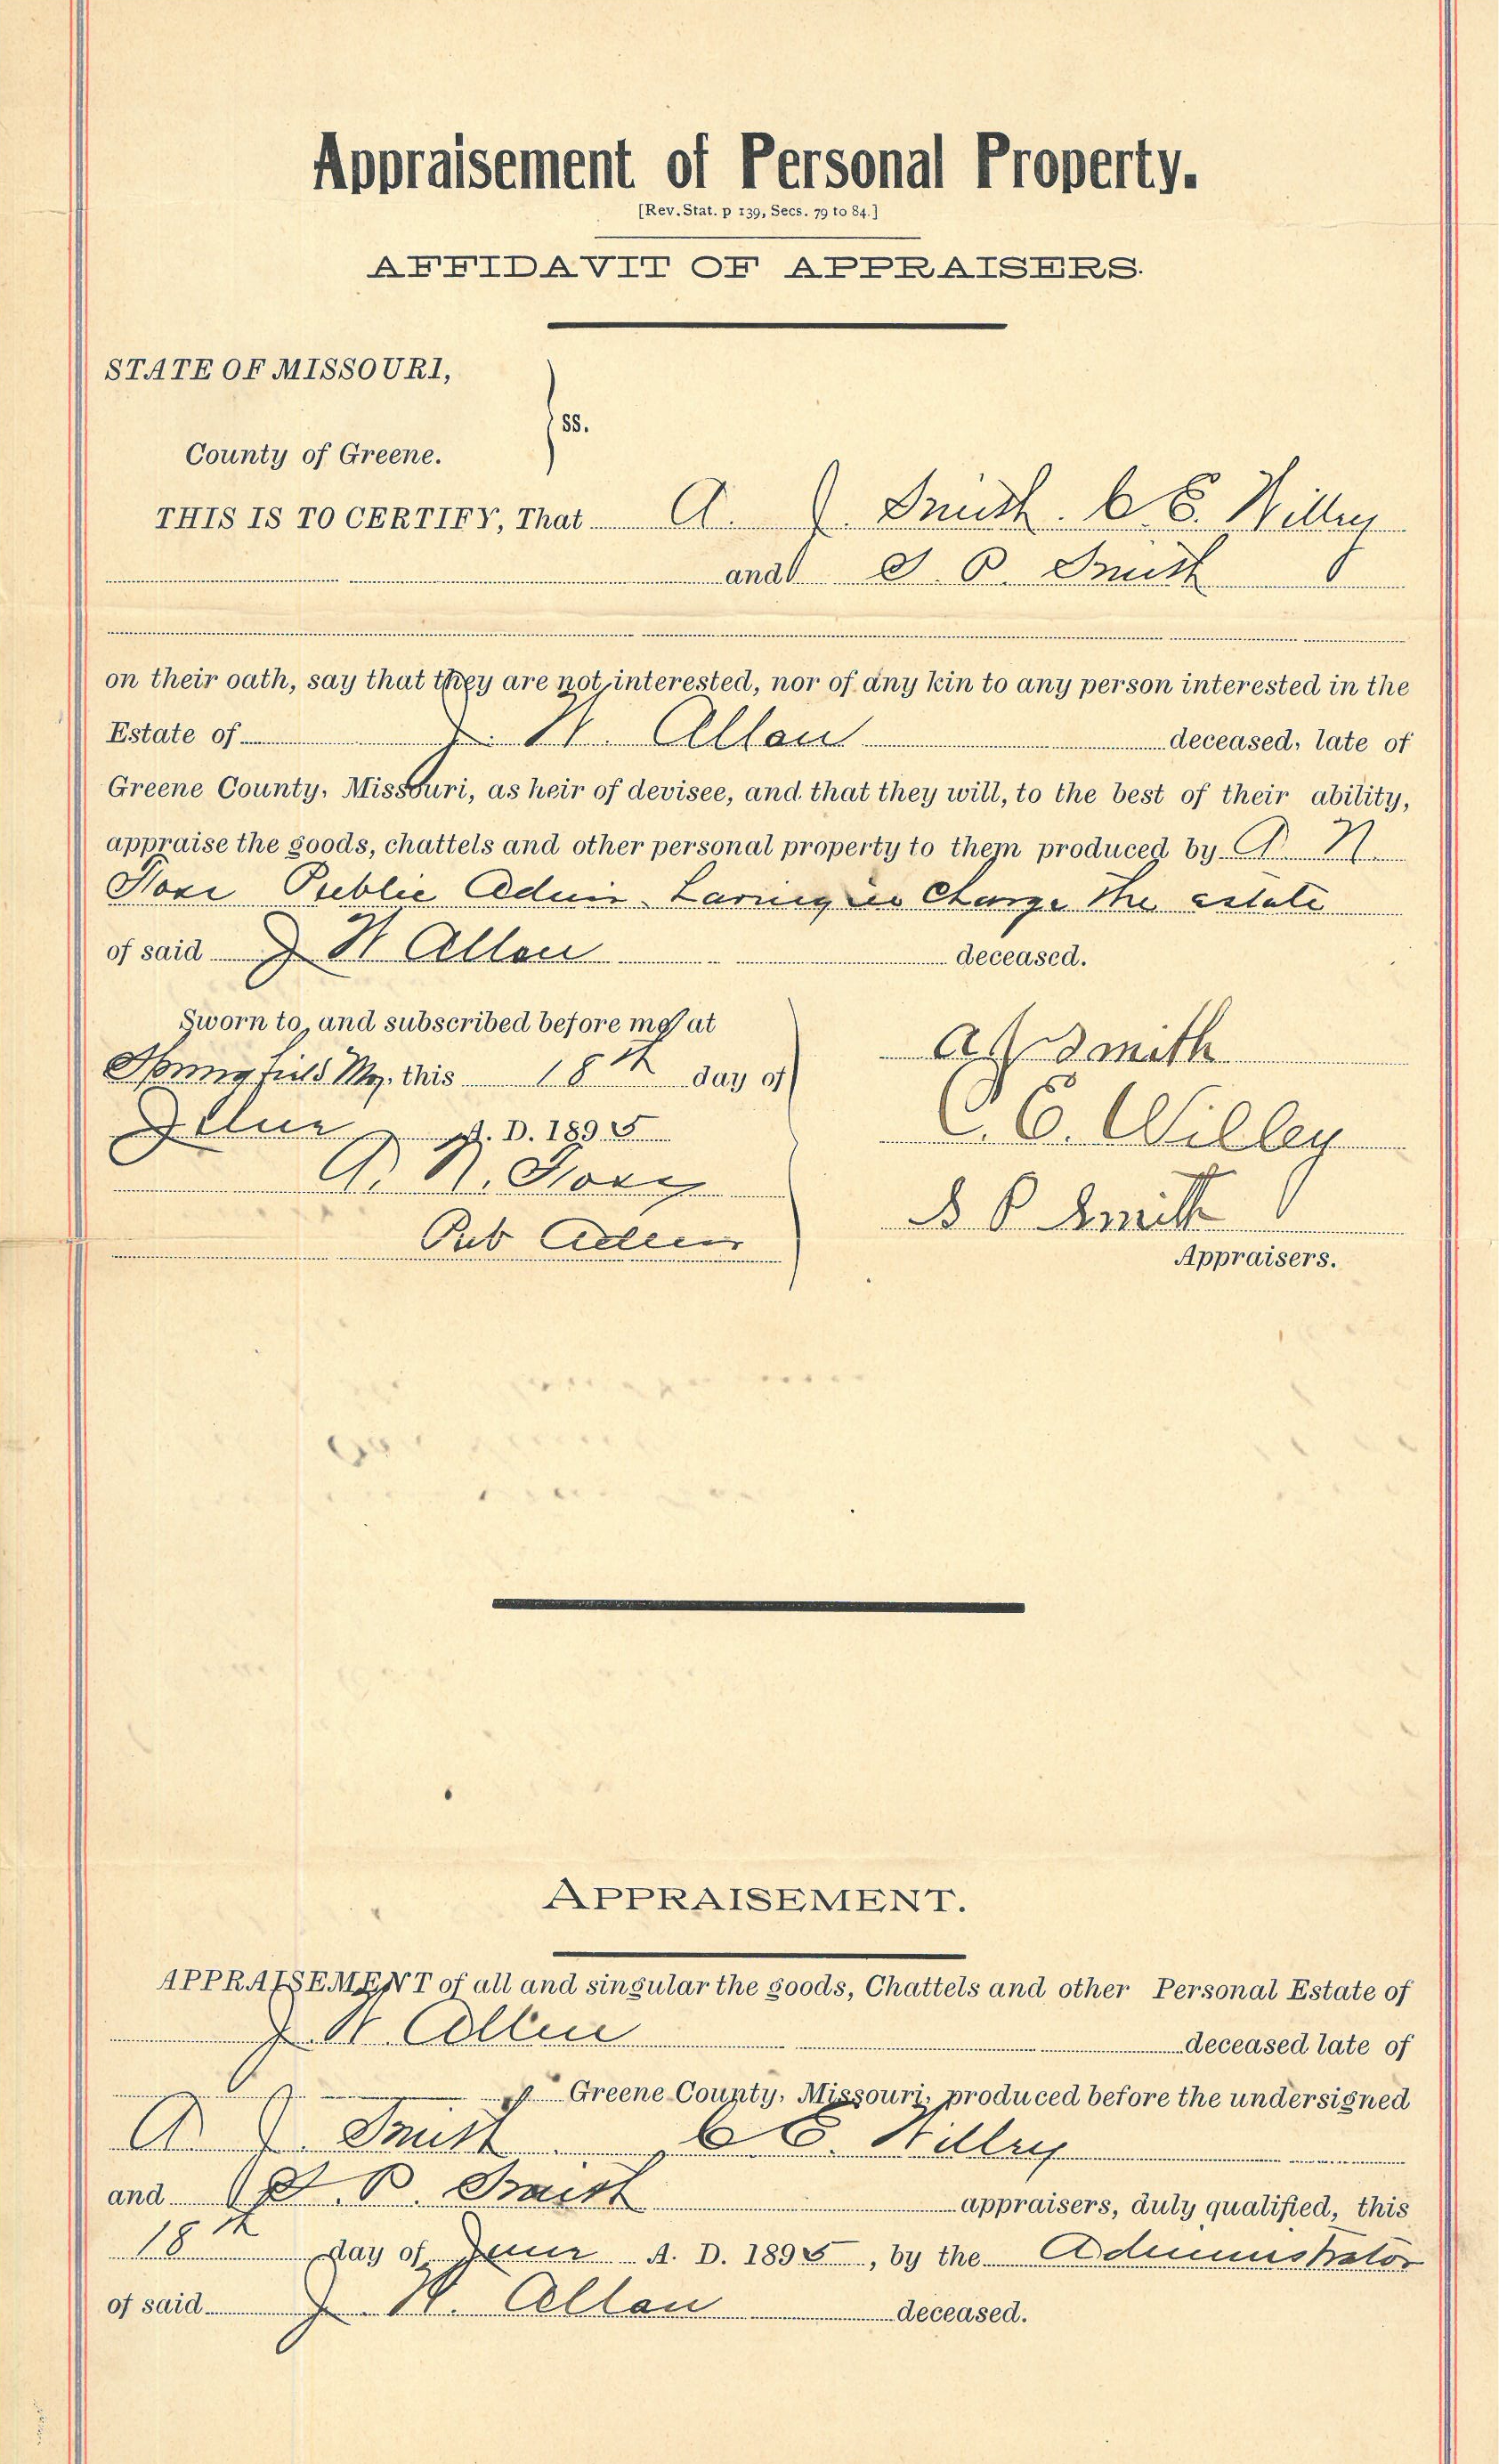 Appraisement of Personal Property.
[Rev. Stat. p 139, Secs. 79 to 84.]
AFFIDAVIT OF APPRAISERS.
STATE OF MISSOURI,
ss.
County of Greene.
THIS IS TO CERTIFY, That A. J. Smith. C. E. Willey
and S. P. Smith
on their oath, say that they are not interested, nor of any kin to any person interested in the
Estate of J. W. Allen deceased, late of
Greene County, Missouri, as heir of devisee, and that they will, to the best of their ability,
appraise the goods, chattels and other personal property to them produced by
Public Admin having in Charge the estate
of said J W Allen deceased.
Sworn to and subscribed before me at
Springfield Mo, this 18th day of
June A. D. 1895
Pub Admr
A J Smith
C. E. Willey
S P Smith
Appraisers.
APPRAISEMENT.
APPRAISEMENT of all and singular the goods, Chattels and other Personal Estate of
J W Allen deceased late of
Greene County, Missouri, produced before the undersigned
A J. Smith C E. Willey
and S. P. Smith appraisers, duly qualified, this
18th day of June A. D. 1895, by the Administrator
of said J. W. Allen deceased.